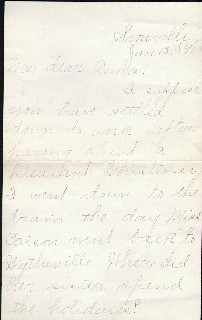 Snowville,
Jan 13
My dear
I suppose
you have settled
down to work after
having spent a
pleasant Christmas
I went down to the
train the day Miss
Faison went back to
Wytheville. Where did
her sister spend
the holidays?